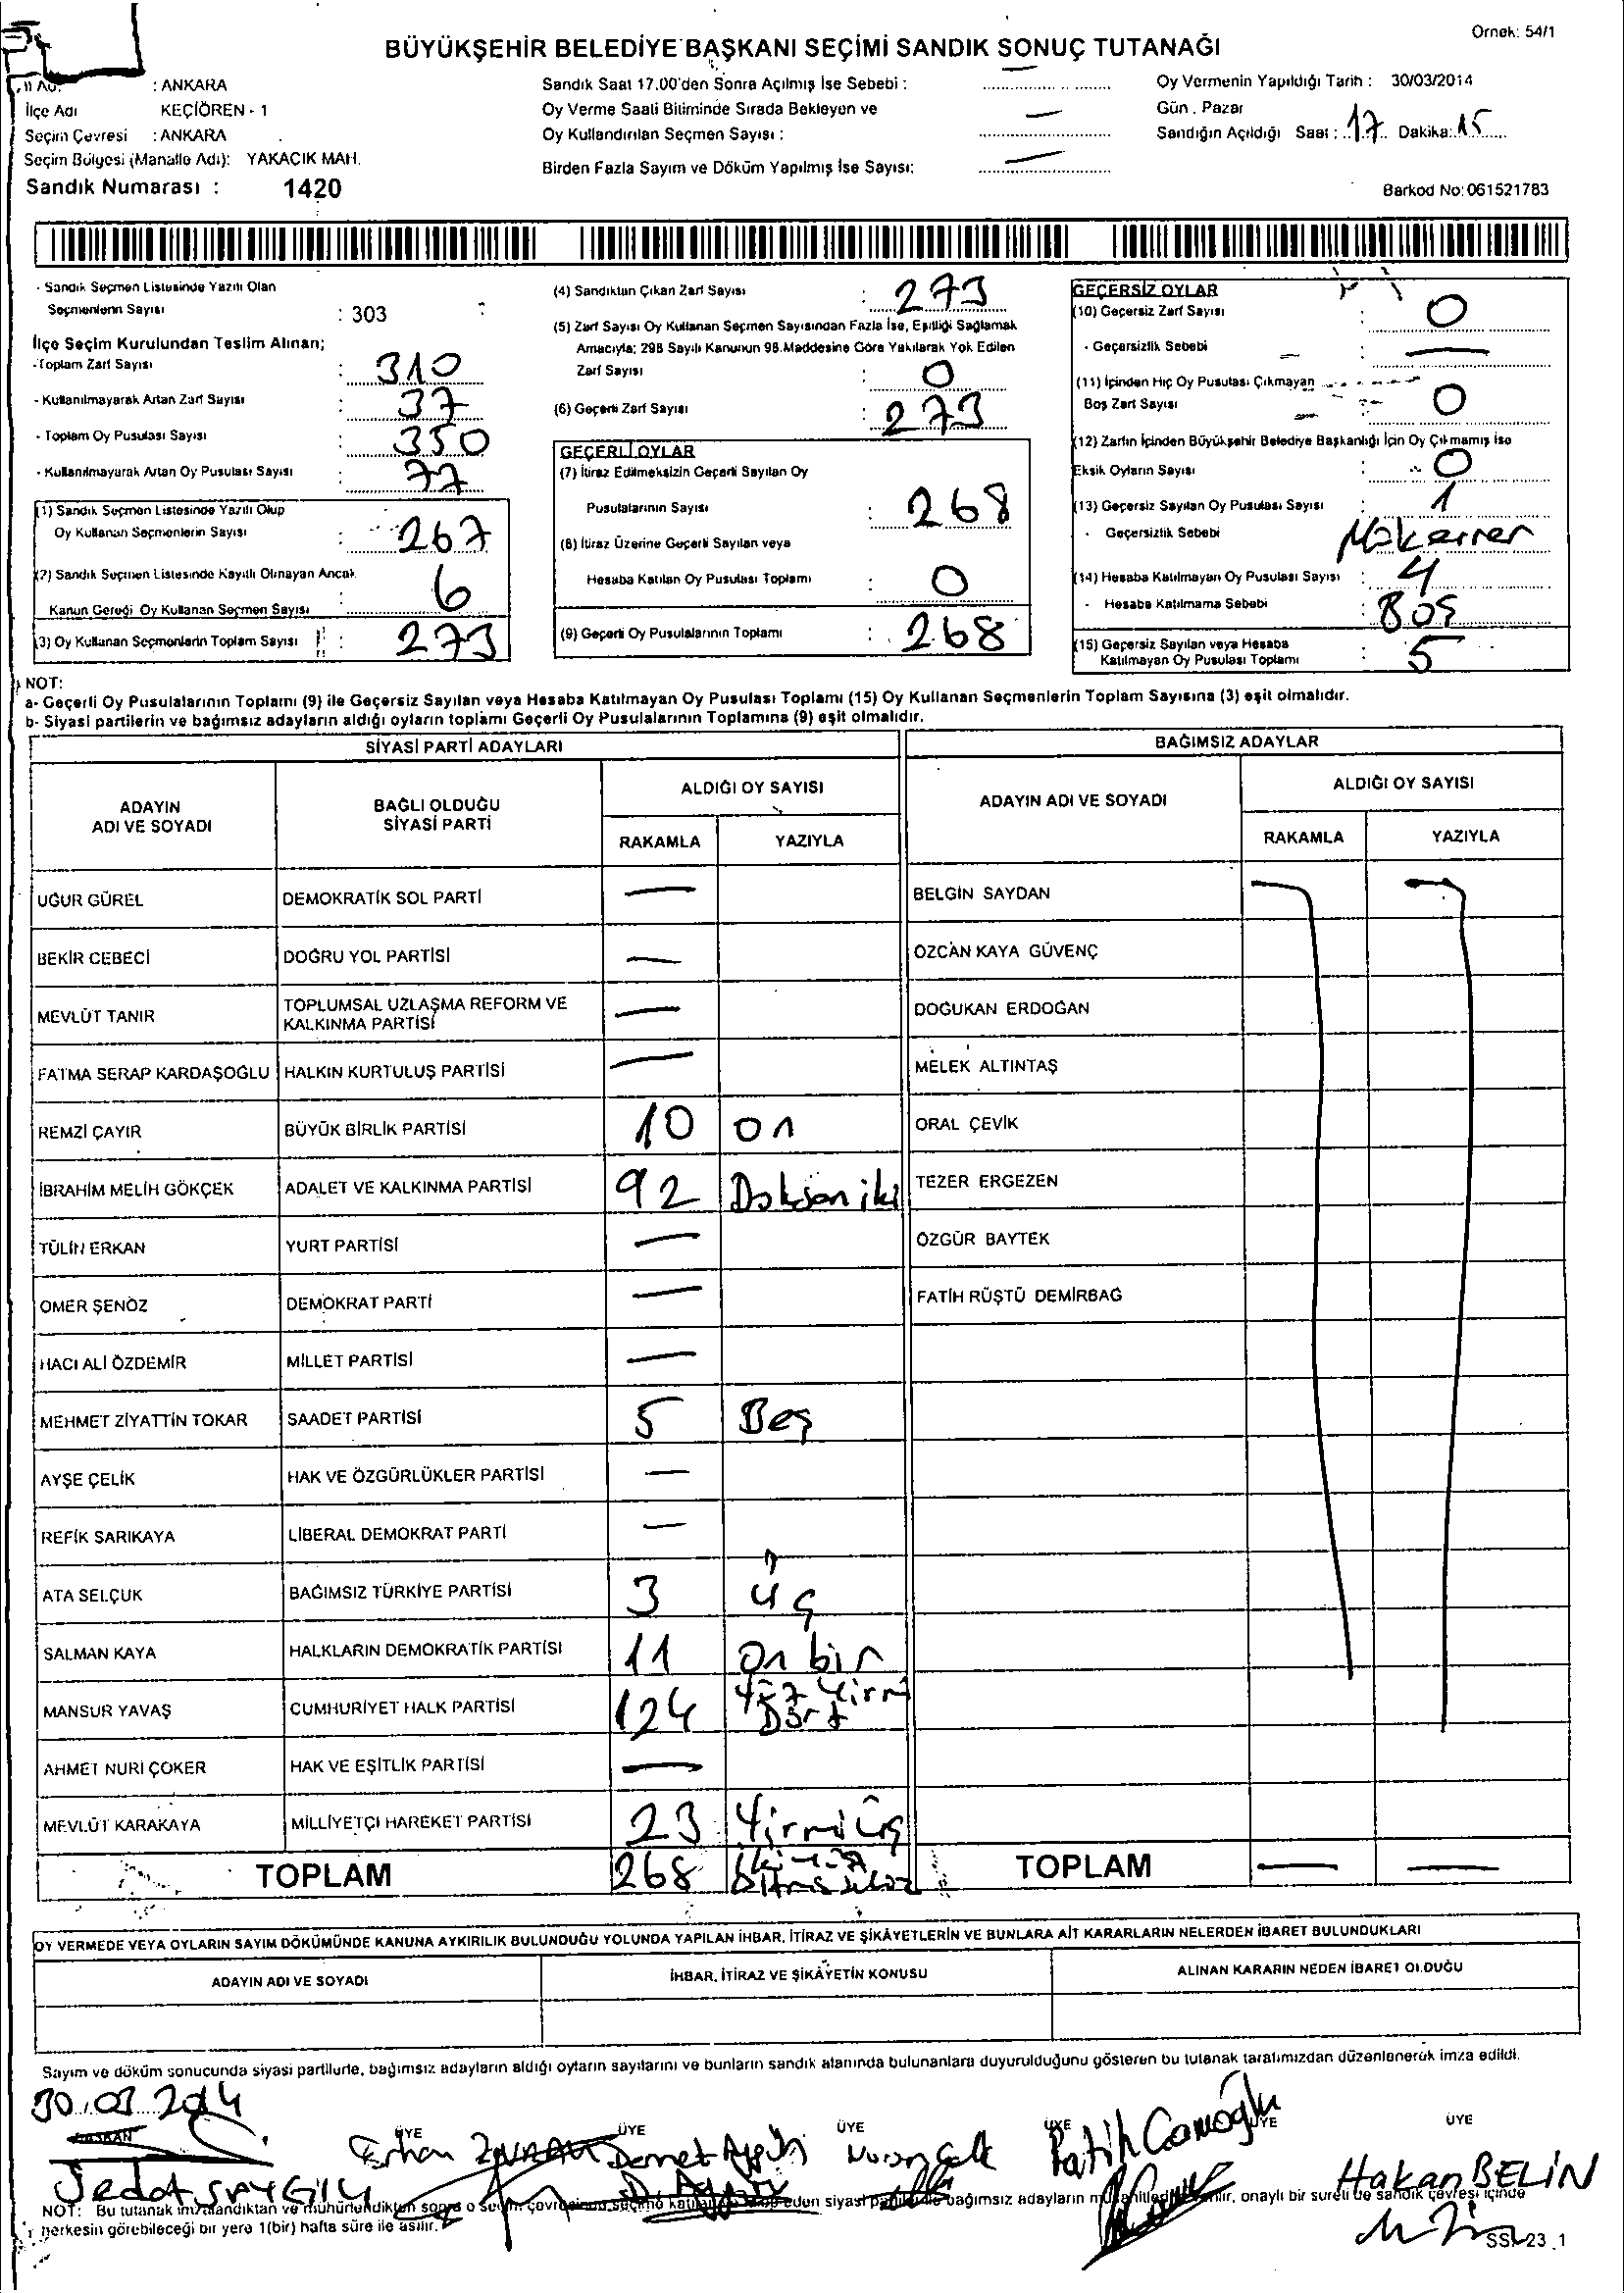 Örnek: 54/1
BÜYÜKŞEHİR BELEDİYE BAŞKANI SEÇİMİ SANDIK SONUÇ TUTANAĞI
İl Adı : ANKARA
İlçe Adı KEÇİÖREN - 1
Seçim Çevresi : ANKARA
Seçim Bölgesi (Mahalle Adı): YAKACIK MAH.
Sandık Numarası : 1420
Sandık Saat 17.00'den Sonra Açılmış İse Sebebi :
Oy Verme Saati Bitiminde Sırada Bekleyen ve
Oy Kullandırılan Seçmen Sayısı : —
Birden Fazla Sayım ve Döküm Yapılmış İse Sayısı: —
Oy Vermenin Yapıldığı Tarih : 30/03/2014
Gün . Pazar
Sandığın Açıldığı Saat : 17 Dakika: 15
Barkod No: 061521783
- Sandık Seçmen Listesinde Yazılı Olan
Seçmenlerin Sayısı : 303
İlçe Seçim Kurulundan Teslim Alınan;
- Toplam Zarf Sayısı : 310
- Kullanılmayarak Artan Zarf Sayısı : 37
- Toplam Oy Pusulası Sayısı : 350
- Kullanılmayarak Artan Oy Pusulası Sayısı : 77
(1) Sandık Seçmen Listesinde Yazılı Olup
Oy Kullanan Seçmenlerin Sayısı : 267
(2) Sandık Seçmen Listesinde Kayıtlı Olmayan Ancak
Kanun Gereği Oy Kullanan Seçmen Sayısı : 6
(3) Oy Kullanan Seçmenlerin Toplam Sayısı : 273
(4) Sandıktan Çıkan Zarf Sayısı : 273
(5) Zarf Sayısı Oy Kullanan Seçmen Sayısından Fazla İse, Eşitliği Sağlamak
Amacıyla; 298 Sayılı Kanunun 98.Maddesine Göre Yakılarak Yok Edilen
Zarf Sayısı : 0
(6) Geçerli Zarf Sayısı : 273
GEÇERLİ OYLAR
(7) İtiraz Edilmeksizin Geçerli Sayılan Oy
Pusulalarının Sayısı : 268
(8) İtiraz Üzerine Geçerli Sayılan veya
Hesaba Katılan Oy Pusulası Toplamı : 0
(9) Geçerli Oy Pusulalarının Toplamı : 268
GEÇERSİZ OYLAR
(10) Geçersiz Zarf Sayısı : 0
- Geçersizlik Sebebi : —
(11) İçinden Hiç Oy Pusulası Çıkmayan
Boş Zarf Sayısı : 0
(12) Zarfın İçinden Büyükşehir Belediye Başkanlığı İçin Oy Çıkmamış ise
Eksik Oyların Sayısı : 0
(13) Geçersiz Sayılan Oy Pusulası Sayısı : 1
- Geçersizlik Sebebi Mükerrer
(14) Hesaba Katılmayan Oy Pusulası Sayısı : 4
- Hesaba Katılmama Sebebi : Boş
(15) Geçersiz Sayılan veya Hesaba
Katılmayan Oy Pusulası Toplamı : 5
NOT:
a- Geçerli Oy Pusulalarının Toplamı (9) ile Geçersiz Sayılan veya Hesaba Katılmayan Oy Pusulası Toplamı (15) Oy Kullanan Seçmenlerin Toplam Sayısına (3) eşit olmalıdır.
b- Siyasi partilerin ve bağımsız adayların aldığı oyların toplamı Geçerli Oy Pusulalarının Toplamına (9) eşit olmalıdır.
SİYASİ PARTİ ADAYLARI
ADAYIN ADI VE SOYADI BAĞLI OLDUĞU SİYASİ PARTİ ALDIĞI OY SAYISI
RAKAMLA YAZIYLA
UĞUR GÜREL DEMOKRATİK SOL PARTİ —
BEKİR CEBECİ DOĞRU YOL PARTİSİ —
MEVLÜT TANIR TOPLUMSAL UZLAŞMA REFORM VE KALKINMA PARTİSİ —
FATMA SERAP KARDAŞOĞLU HALKIN KURTULUŞ PARTİSİ —
REMZİ ÇAYIR BÜYÜK BİRLİK PARTİSİ 10 on
İBRAHİM MELİH GÖKÇEK ADALET VE KALKINMA PARTİSİ 92 Doksan iki
TÜLİN ERKAN YURT PARTİSİ —
ÖMER ŞENÖZ DEMOKRAT PARTİ —
HACI ALİ ÖZDEMİR MİLLET PARTİSİ —
MEHMET ZİYATTİN TOKAR SAADET PARTİSİ 5 Beş
AYŞE ÇELİK HAK VE ÖZGÜRLÜKLER PARTİSİ —
REFİK SARIKAYA LİBERAL DEMOKRAT PARTİ —
ATA SELÇUK BAĞIMSIZ TÜRKİYE PARTİSİ 3 üç
SALMAN KAYA HALKLARIN DEMOKRATİK PARTİSİ 11 on bir
MANSUR YAVAŞ CUMHURİYET HALK PARTİSİ 124 Yüz Yirmi Dört
AHMET NURİ ÇOKER HAK VE EŞİTLİK PARTİSİ —
MEVLÜT KARAKAYA MİLLİYETÇİ HAREKET PARTİSİ 23 Yirmi üç
TOPLAM 268 iki yüz
BAĞIMSIZ ADAYLAR
ADAYIN ADI VE SOYADI ALDIĞI OY SAYISI
RAKAMLA YAZIYLA
BELGİN SAYDAN
ÖZCAN KAYA GÜVENÇ
DOĞUKAN ERDOĞAN
MELEK ALTINTAŞ
ORAL ÇEVİK
TEZER ERGEZEN
ÖZGÜR BAYTEK
FATİH RÜŞTÜ DEMİRBAĞ
TOPLAM — —
OY VERMEDE VEYA OYLARIN SAYIM DÖKÜMÜNDE KANUNA AYKIRILIK BULUNDUĞU YOLUNDA YAPILAN İHBAR, İTİRAZ VE ŞİKÂYETLERİN VE BUNLARA AİT KARARLARIN NELERDEN İBARET BULUNDUKLARI
ADAYIN ADI VE SOYADI İHBAR, İTİRAZ VE ŞİKÂYETİN KONUSU ALINAN KARARIN NEDEN İBARET OLDUĞU
Sayım ve döküm sonucunda siyasi partilerle, bağımsız adayların aldığı oyların sayılarını ve bunların sandık alanında bulunanlara duyurulduğunu gösteren bu tutanak tarafımızdan düzenlenerek imza edildi.
30.03.2014
BAŞKAN ÜYE ÜYE ÜYE ÜYE ÜYE ÜYE
Sedat SAYGILI Erhan Demet Fatih Camoğlu Hakan BELİN
NOT: Bu tutanak imzalandıktan ve mühürlendikten sonra o seçim çevresinde seçime katılan ve talep eden siyasi partilerle bağımsız adayların müşahitlerine verilir, onaylı bir sureti de sandık çevresi içinde
herkesin görebileceği bir yere 1(bir) hafta süre ile asılır.